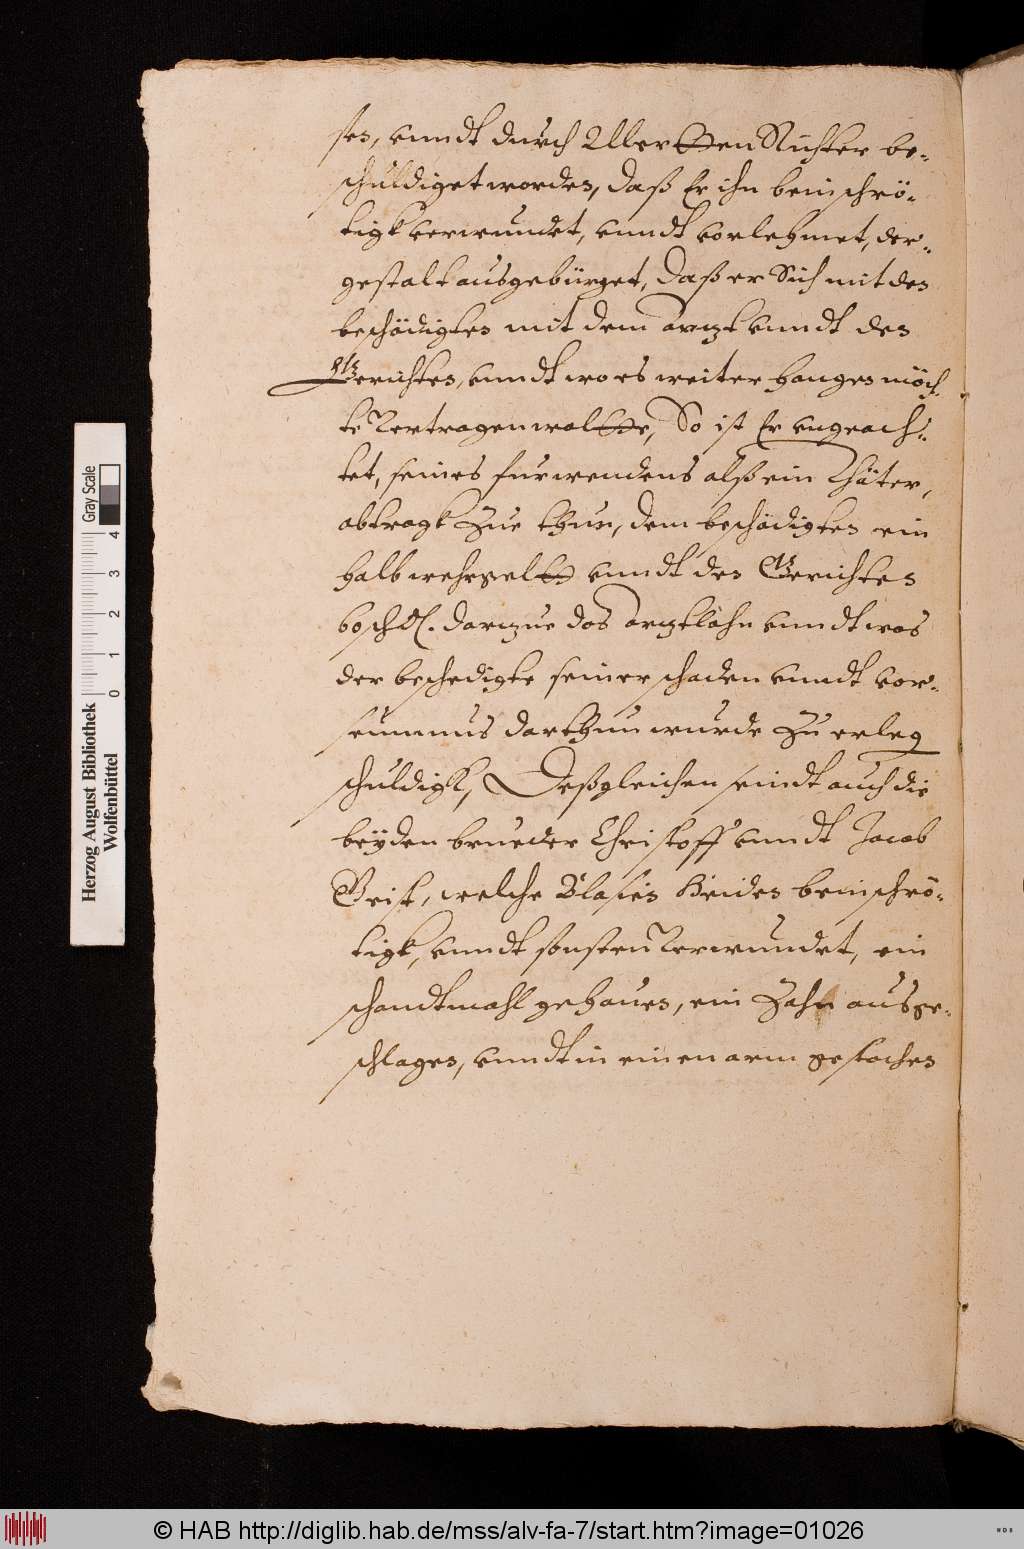 sen, vnndt durch Allerley den Richter be-
schuldiget worden, daß Er ihn beinschrö-
tigk verwundet, vnndt vorlehmet, der-
gestalt ausgebürget, daß er Sich mit den
beschädigten mit dem artzt vnndt den
Gerichten, vnndt wo es weiter hangen möch-
te Vertragen wolte, So ist Er vngeach-
tet, seines furwendens alß ein Thäter,
abtragk Zue thun, dem beschädigten ein
halb wehrgeldt vnndt den Gerichten
60 ßchl. dartzue das artztlohn vnndt was
der beschedigte seiner schaden vnndt vor-
seumnus darthun wurde Zu erleg
schuldigk, Deßgleichen seindt auch die
beyden brueder Christoff vnndt Jacob
Geist, welche Blasien beinschrö-
tigk, vnndt sonsten Verwundet, ein
schandtmahl gehauen, ein Zahn ausge-
schlagen, vnndt in einen arm gestochen
Herzog August Bibliothek
Wolfenbüttel
0 1 2 3 4
Gray Scale
© HAB http://diglib.hab.de/mss/alv-fa-7/start.htm?image=01026